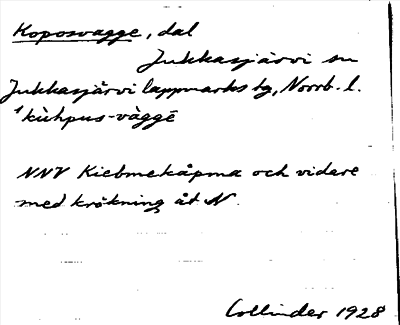 Koposvagge, dal
Jukkasjärvi sn
Jukkasjärvi lappmarks tg, Norrb. l.
‛kùhpus-vàggē
NNV Kiebmekåpma och vidare
med krökning åt N.
Collinder 1928